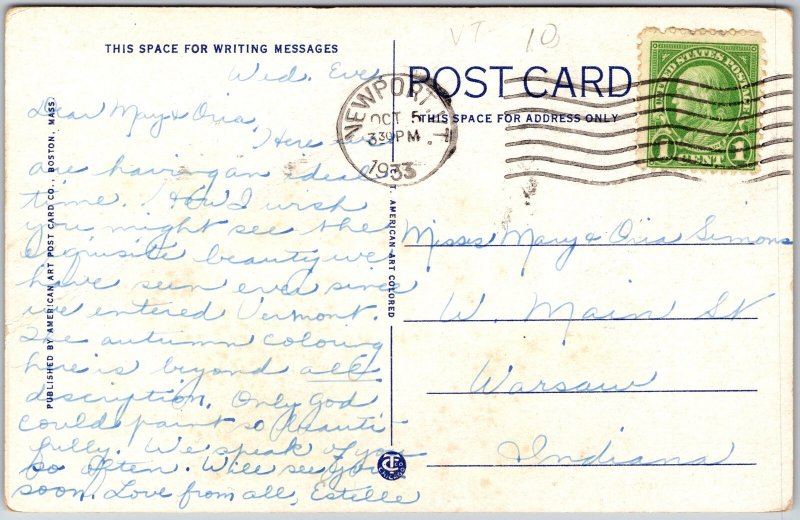 THIS SPACE FOR WRITING MESSAGES
Wed. Eve.
Dear Mary & Oria,
Here we
are having an ideal
time. How I wish
you might see the
exquisite beauty we
have seen ever since
we entered Vermont.
The autumn coloring
here is beyond all
description. Only God
could paint so beauti-
fully. We speak of you
so often. Will see you
soon. Love from all, Estelle
PUBLISHED BY AMERICAN ART POST CARD CO., BOSTON, MASS.
AMERICAN ART COLORED
VT 10
POST CARD
THIS SPACE FOR ADDRESS ONLY
NEWPORT, VT
OCT 5
330 PM
1933
UNITED STATES POSTAGE
1 CENT 1
Misses Mary & Oria Simons
W. Main St
Warsaw
Indiana
CHICAGO